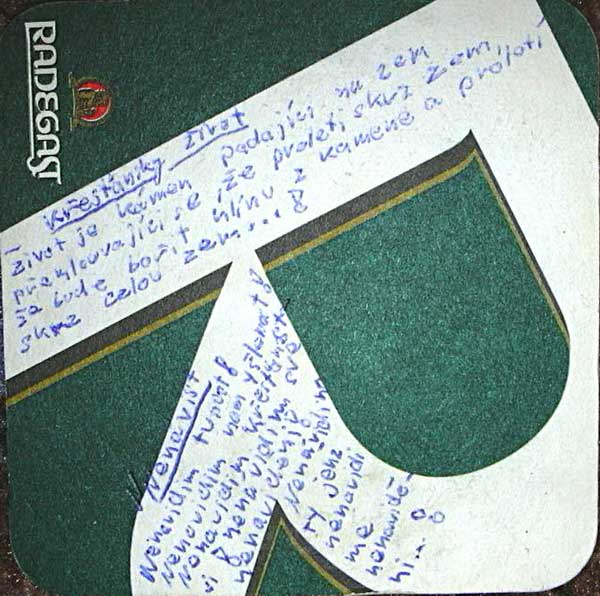 RADEGAST
- křesťanský život
život je kámen padající na zem
přemlouvající se, že proletí skrz zem,
že bude bořit hlínu z kamene a proletí
skrz celou zem...
Nenávist
Nenávidím tupost
Nenávidím nemyšlenost
Nenávidím křesťanst-
ví nenávidím své
nenávidění
Nenávidím
ty jenž
nenávidí
mé
nenávidě-
ní...